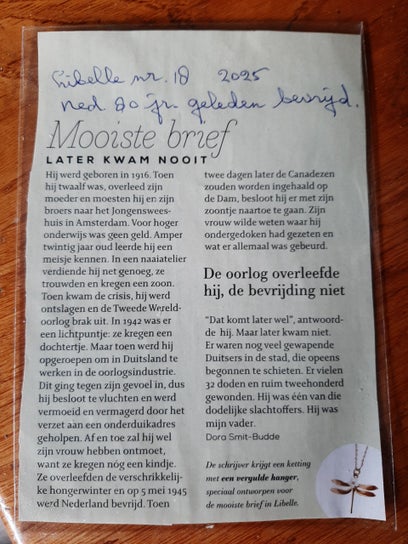 Libelle nr. 18 2025
Ned 80 jr. geleden bevrijd.
Mooiste brief
LATER KWAM NOOIT
Hij werd geboren in 1916. Toen
hij twaalf was, overleed zijn
moeder en moesten hij en zijn
broers naar het Jongenswees-
huis in Amsterdam. Voor hoger
onderwijs was geen geld. Amper
twintig jaar oud leerde hij een
meisje kennen. In een naaiatelier
verdiende hij net genoeg, ze
trouwden en kregen een zoon.
Toen kwam de crisis, hij werd
ontslagen en de Tweede Wereld-
oorlog brak uit. In 1942 was er
een lichtpuntje: ze kregen een
dochtertje. Maar toen werd hij
opgeroepen om in Duitsland te
werken in de oorlogsindustrie.
Dit ging tegen zijn gevoel in, dus
hij besloot te vluchten en werd
vermoeid en vermagerd door het
verzet aan een onderduikadres
geholpen. Af en toe zal hij wel
zijn vrouw hebben ontmoet,
want ze kregen nóg een kindje.
Ze overleefden de verschrikkelij-
ke hongerwinter en op 5 mei 1945
werd Nederland bevrijd. Toen
twee dagen later de Canadezen
zouden worden ingehaald op
de Dam, besloot hij er met zijn
zoontje naartoe te gaan. Zijn
vrouw wilde weten waar hij
ondergedoken had gezeten en
wat er allemaal was gebeurd.
De oorlog overleefde
hij, de bevrijding niet
"Dat komt later wel", antwoord-
de hij. Maar later kwam niet.
Er waren nog veel gewapende
Duitsers in de stad, die opeens
begonnen te schieten. Er vielen
32 doden en ruim tweehonderd
gewonden. Hij was één van die
dodelijke slachtoffers. Hij was
mijn vader.
Dora Smit-Budde
De schrijver krijgt een ketting
met een vergulde hanger,
speciaal ontworpen voor
de mooiste brief in Libelle.